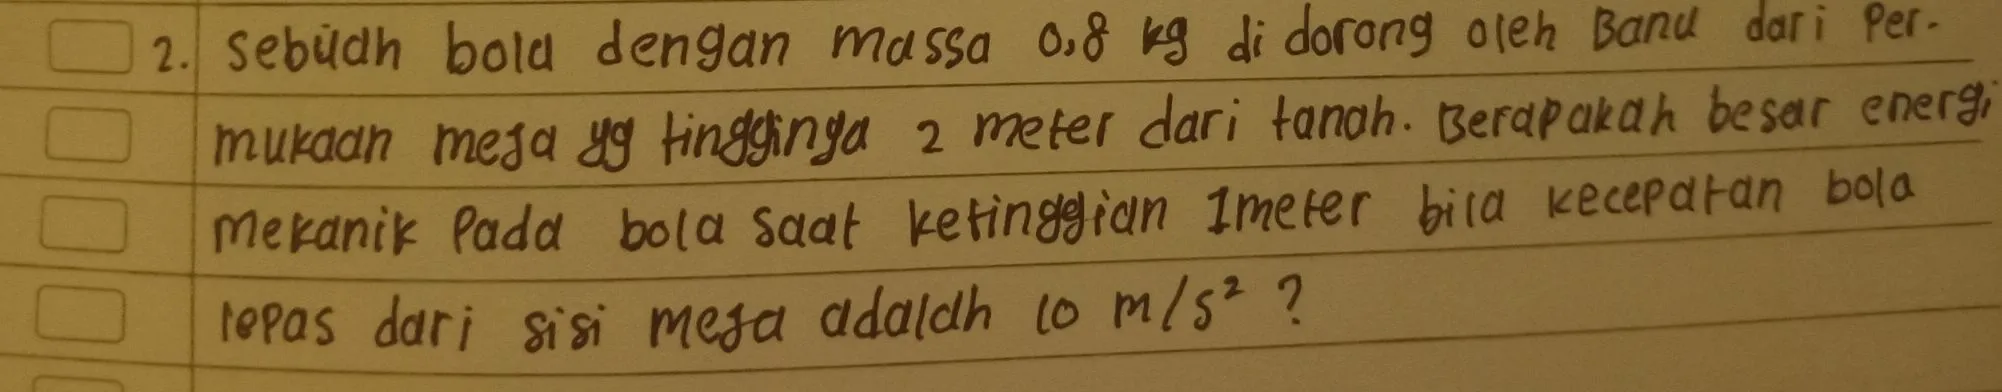 2. Sebuah bola dengan massa 0,8 kg di dorong oleh Banu dari Per-
mukaan meja yg tingginya 2 meter dari tanah. Berapakah besar energi
mekanik Pada bola saat ketinggian 1meter bila kecepatan bola
lepas dari sisi meja adalah 10 m/s² ?